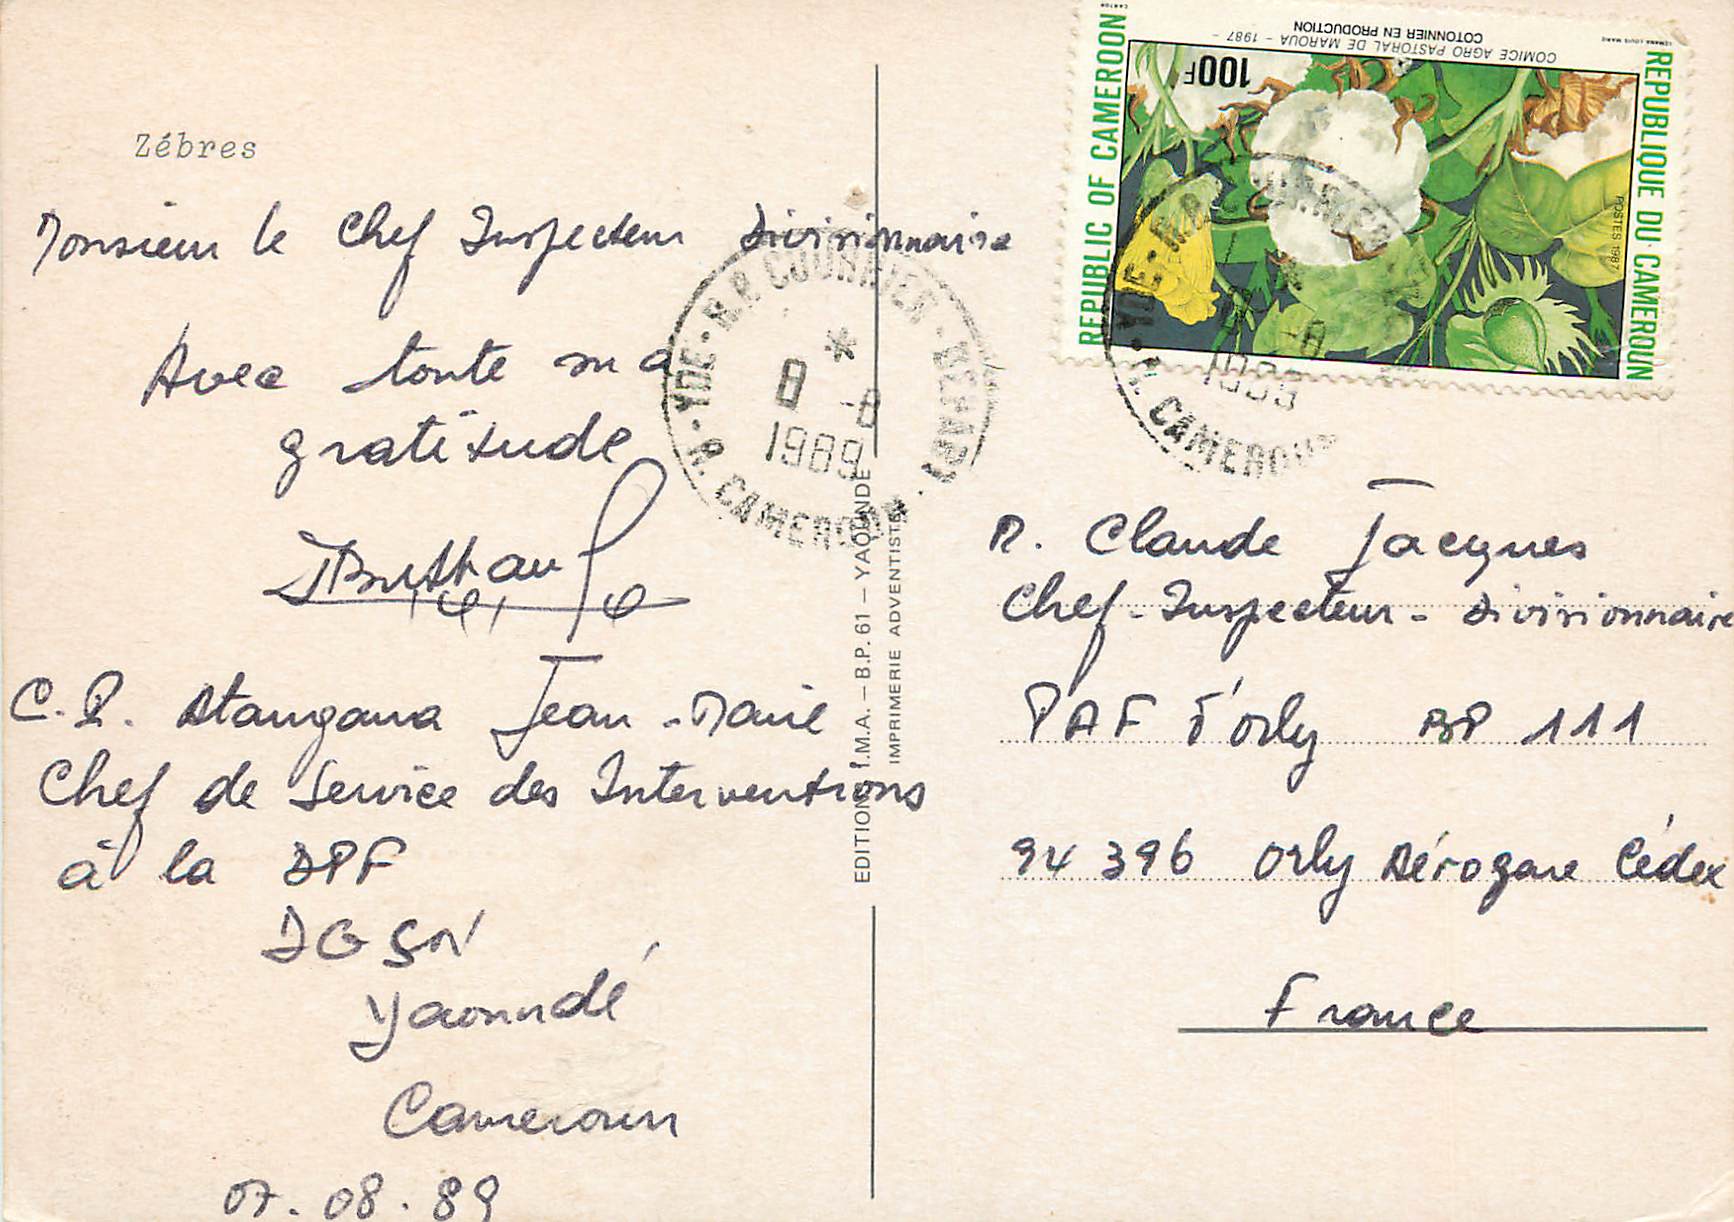 Zébres
Monsieur le Chef Inspecteur Divisionnaire
Avec toute ma
gratitude
C.P. Atangana Jean-Marie
Chef de Service des Interventions
à la DPF
DGSN
Yaoundé
Cameroun
07.08.89
YDE-N.P. COURRIER-DEPART
8 -8
1989
R. CAMEROUN
EDITION I.M.A. — B.P. 61 — YAOUNDE
IMPRIMERIE ADVENTISTE
REPUBLIC OF CAMEROON
REPUBLIQUE DU CAMEROUN
COMICE AGRO PASTORAL DE MAROUA - 1987 -
COTONNIER EN PRODUCTION
100F
POSTES 1987
CARTOR
LEMANA LOUIS MARIE
YDE-N.P.
-8
R. CAMEROUN
M. Claude Jacques
Chef-Inspecteur-Divisionnaire
PAF d'Orly BP 111
94 396 Orly Aérogare Cédex
France